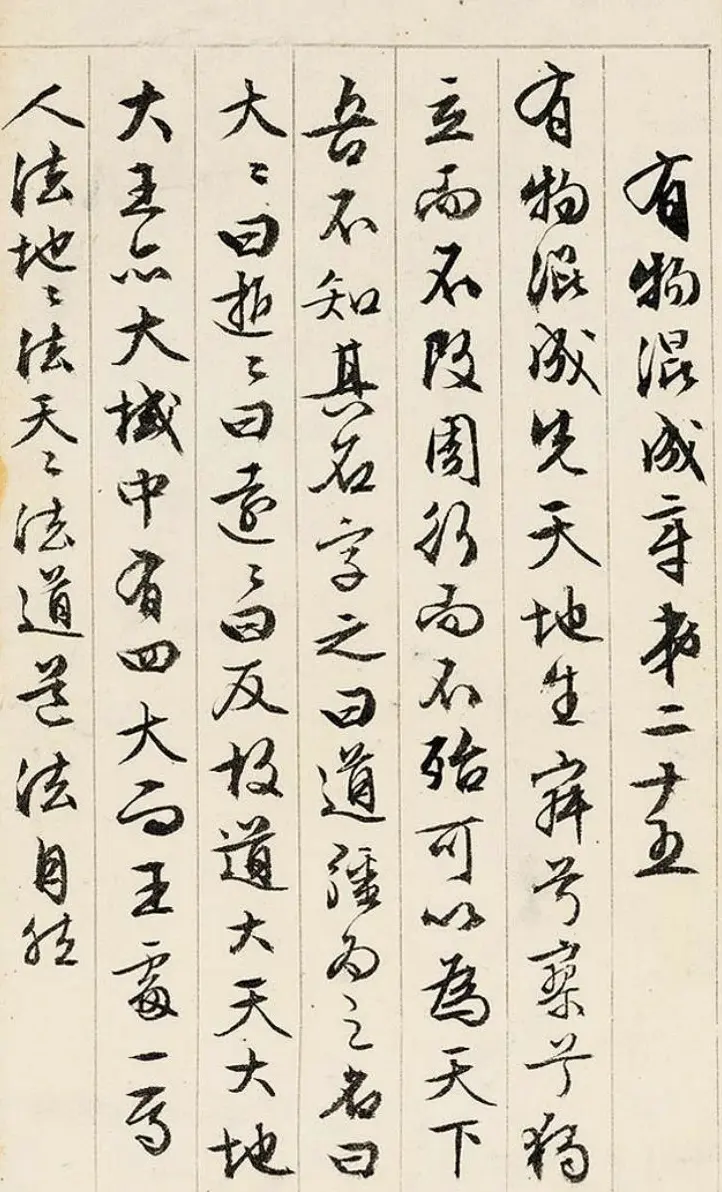 有物混成章第二十五
有物混成先天地生寂兮寥兮獨
立而不改周行而不殆可以為天下
吾不知其名字之曰道彊為之名曰
大〻曰逝〻曰遠〻曰反故道大天大地
大王亦大域中有四大而王處一焉
人法地〻法天〻法道道法自然